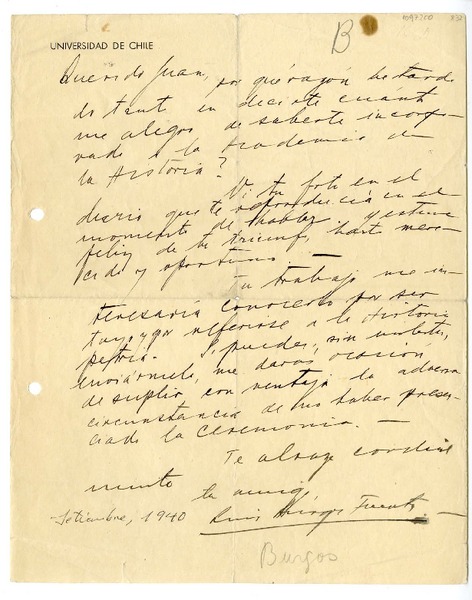 1097200
B
UNIVERSIDAD DE CHILE
Querido Juan, por qué razón he tarda-
do tanto en decirte cuánto
me alegro de saberte incorpo-
rado a la Academia de
la Historia?
Vi tu foto en el
diario que te reproducía en el
momento de hablar y estuve
feliz de tu triunfo, harto mere-
cido y oportuno. —
Tu trabajo me in-
teresaría conocerlo por ser
tuyo y por referirse a la Historia
patria. Si puedes, sin molestia,
enviármelo, me darás ocasión
de suplir con ventaja la adversa
circunstancia de no haber presen-
ciado la Ceremonia. —
Te abraza cordial
mente
tu amigo
Setiembre, 1940
Luis Fuentes. —
Burgos